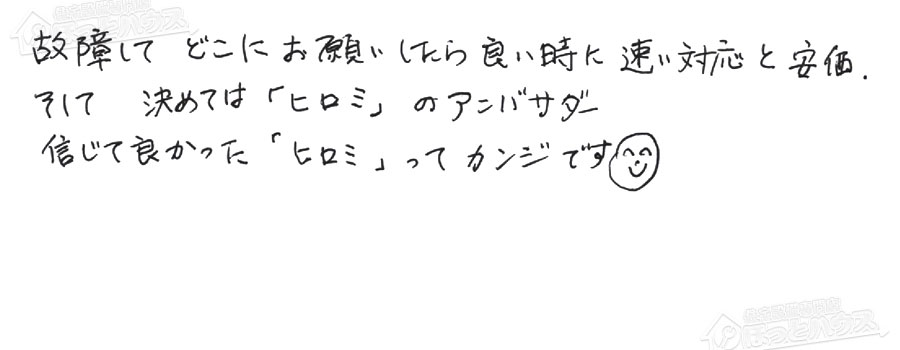 故障して どこにお願いしたら良い時に 速い対応と安価.
そして 決めては「ヒロミ」のアンバサダー
信じて良かった「ヒロミ」ってカンジです
ほっとハウス
ほっとハウス